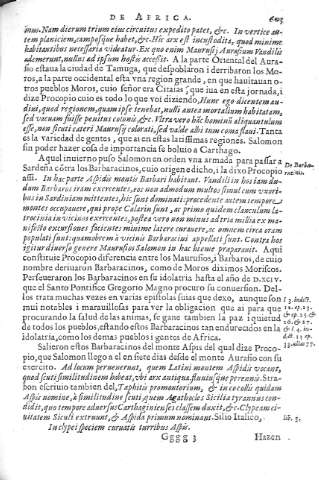 DE AFRICA. 605
inus. Nam dierum trium eius circuitus expedito patet, &c. In vertice au-
tem planiciem, camposque habet, &c. Hic ex est incustodita, quod minime
habitantibus necessaria videatur. Ex quo enim Maurusij Aurasium Vandilis
ademerunt, nullus ad ipsum hostis accessit. A la parte Oriental del Aura-
sio estaua la ciudad de Tamuga, que despoblaron i derribaron los Mo-
ros, a la parte occidental esta vna region grande, en que hauitauan o-
tros pueblos Moros, cuio señor era Citaias, que iua en esta jornada, i
dize Procopio cuio es todo lo que voi diziendo, Hunc ego dicentem au-
diui, quod regionem, quam ipse tenebat, nulli autea mortalium habitatam,
sed vacuam fuisse penitus colonis, &c. Vltra vero hic hominũ aliquantulum
esse, non sicuti cateri Maurusij colorati, sed valde albi tum coma flaui. Tanta
es la variedad de gentes, que ai en estas latissimas regiones. Salomon
sin poder hazer cosa de importancia se boluio a Carthago.
A quel inuierno puso Salomon en orden vna armada para passar a
Sardeña cõtra los Barbaracinos, cuio origen e dicho, i la dixo Procopio
assi. In hac parte Aspidis montis Barbari habitant. Vandili in hos iam du-
dum Barbaros iram exercentes, eos non admodum multos simul cum vxori-
bus in Sardiniam mittentes, hic sunt dominati: procedente autem tempore
montes occupauere, qui prope Calarin sunt, ac primo quidem clanculum la-
trocinia in vicinos exercentes, postea vero non minus ad tria millia ex ma-
nifesto excursiones facientes minime latere curauere, ac omnem circa oram
populati sunt, quamobrem à vicinis Barbaricini appellati sunt. Contra hos
igitur diuerso genere Maurusios Salomon in hac hieme praeparauit. Aqui
constituie Procopio diferencia entre los Maurusios, i Barbaros, de cuio
nombre deriuaron Barbaracinos, como de Moros diximos Moriscos.
Perseueraron los Barbaracinos en su idolatria hasta el año de DXCIV.
que el Santo Pontifice Gregorio Magno procuro su conuersion. Del-
los trata muchas vezes en varias epistolas suias que dexo, aunque son
mui notables i marauillosas para ver la obligacion que ai para que
procurando la salud de las animas, se gane tambien la paz i quietud
de todos los pueblos, estando estos Barbaracinos tan endurecidos en la
idolatria, como los demas pueblos i gentes de Africa.
Salieron estos Barbaracinos del monte Aspis del qual dize Proco-
pio, que Salomon llego a el en siete dias desde el monte Aurasio con su
exercito. Ad locum peruenerunt, quem Latini montem Aspidis vocant,
quod scuti similitudinem habeat, vbi ex antiqua fluuius ijque perennis. Stra-
bon escriuio tambien del, Taphitis promontorium, & in eo collis quidam
Aspis nomine, à similitudine scuti, quem Agathocles Siciliæ tyrannus con-
didit, quo tempore aduersus Carthaginienses classem duxit, &c. Clypeam ci-
uitatem Siculi extruunt, & Aspida primum nominant. Silio Italico,
In clypei speciem curuatis turribus Aspis.
Gggg 3 Hazen
De Barba-
lib. 3.